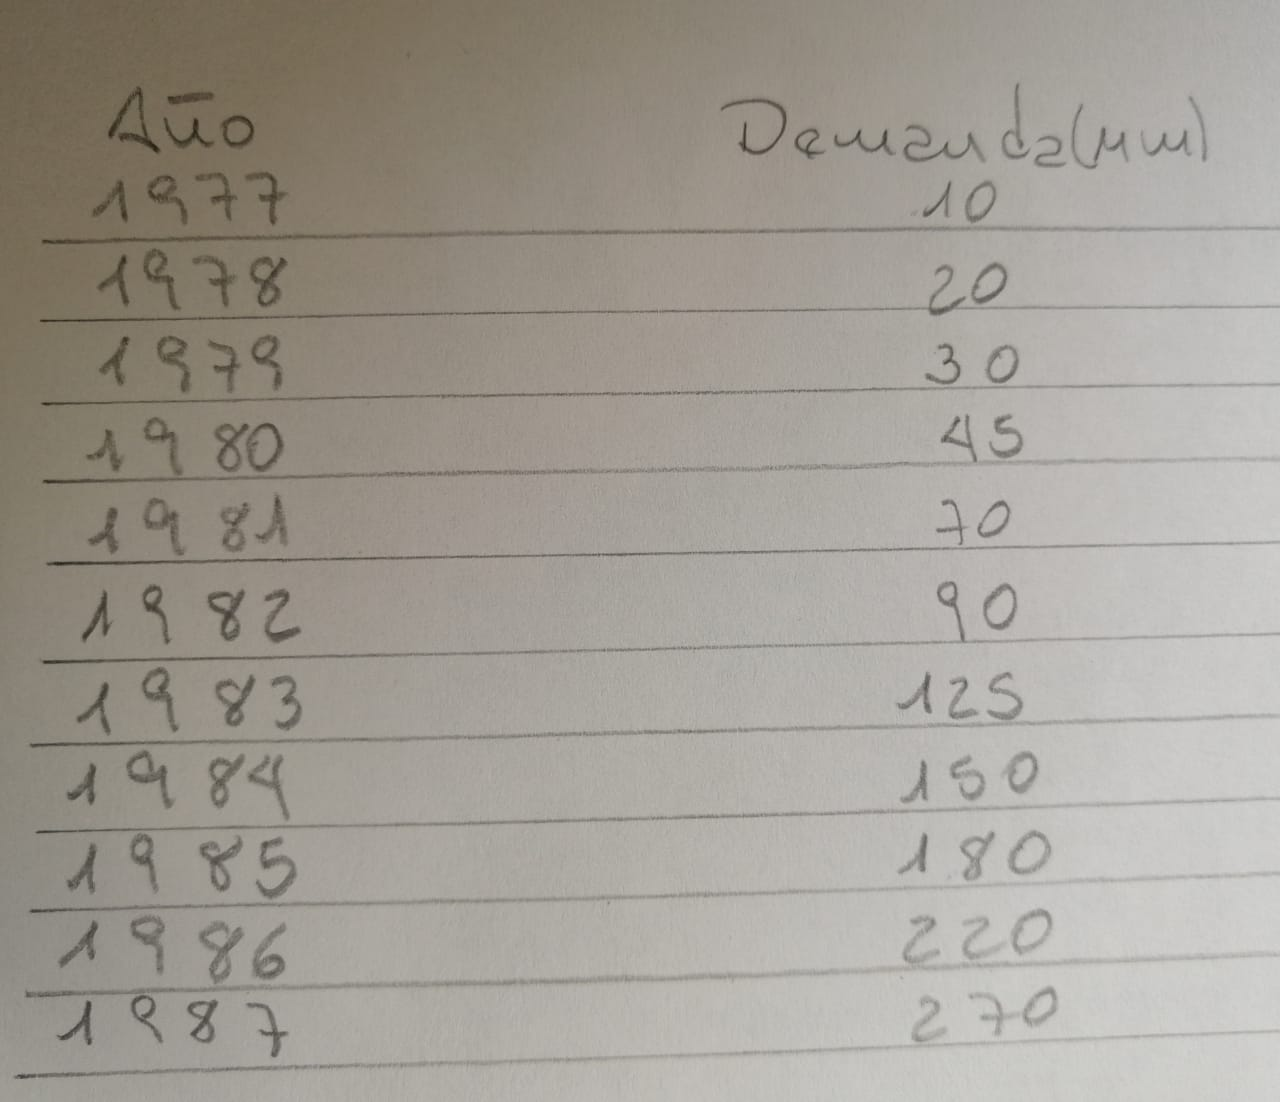 Año Demanda(mm)
1977 10
1978 20
1979 30
1980 45
1981 70
1982 90
1983 125
1984 150
1985 180
1986 220
1987 270